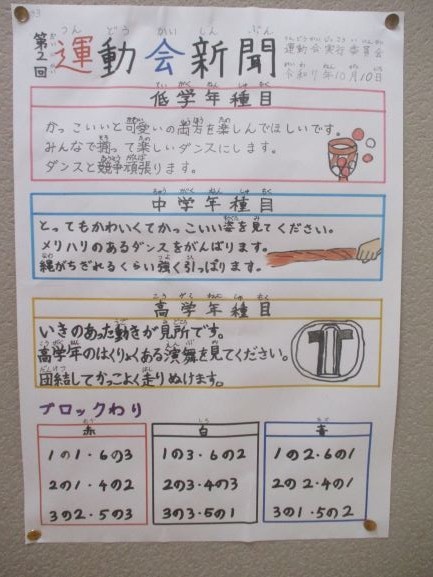 第2回 運動会新聞
運動会実行委員会
令和7年10月10日
低学年種目
かっこいいと可愛いの両方を楽しんでほしいです。
みんなで揃って楽しいダンスにします。
ダンスと競争頑張ります。
中学年種目
とってもかわいくてかっこいい姿を見てください。
メリハリのあるダンスをがんばります。
縄がちぎれるくらい強く引っぱります。
高学年種目
いきのあった動きが見所です。
高学年のはくりょくある演舞を見てください。
団結してかっこよく走りぬけます。
ブロックわり
赤 白 青
1の1・6の3 1の3・6の2 1の2・6の1
2の1・4の2 2の3・4の3 2の2・4の1
3の2・5の3 3の3・5の1 3の1・5の2